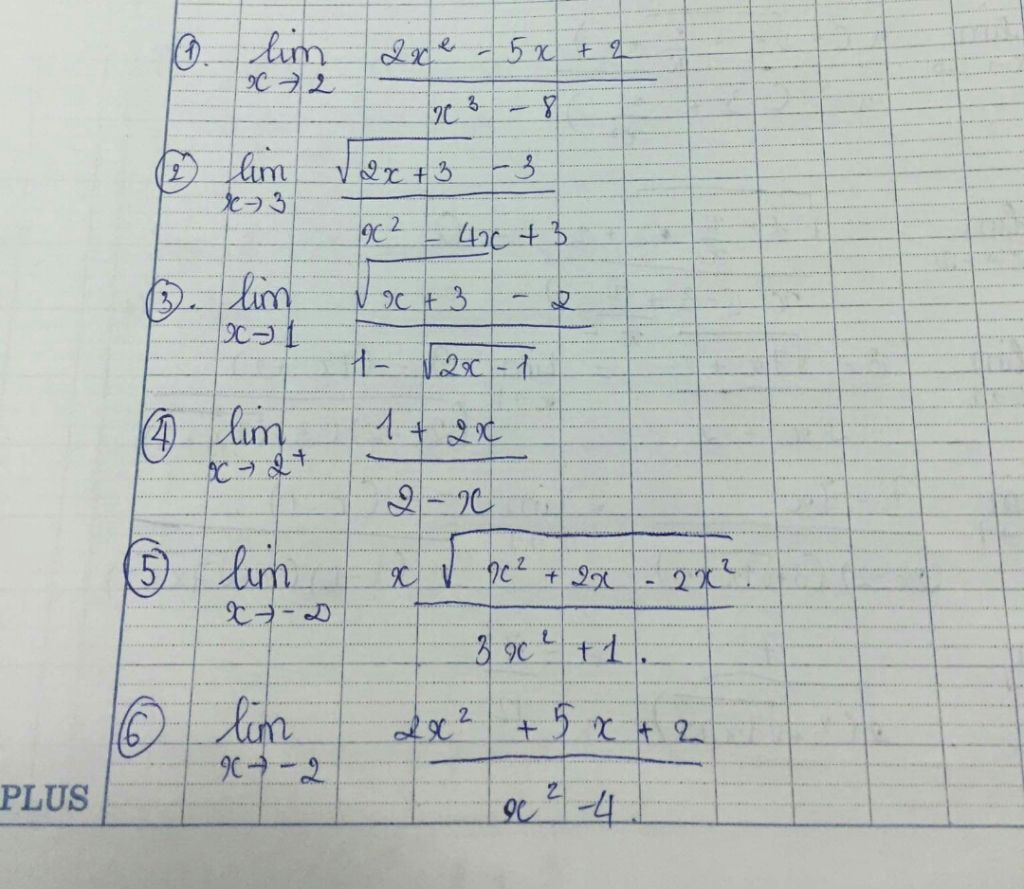 ①. lim x→2 (2x² - 5x + 2) / (x³ - 8)
② lim x→3 (√(2x+3) - 3) / (x² - 4x + 3)
③. lim x→1 (√(x+3) - 2) / (1 - √(2x-1))
④ lim x→2⁺ (1 + 2x) / (2 - x)
⑤ lim x→-∞ (x √(x² + 2x - 2x²)) / (3x² + 1).
⑥ lim x→-2 (2x² + 5x + 2) / (x² - 4).
PLUS